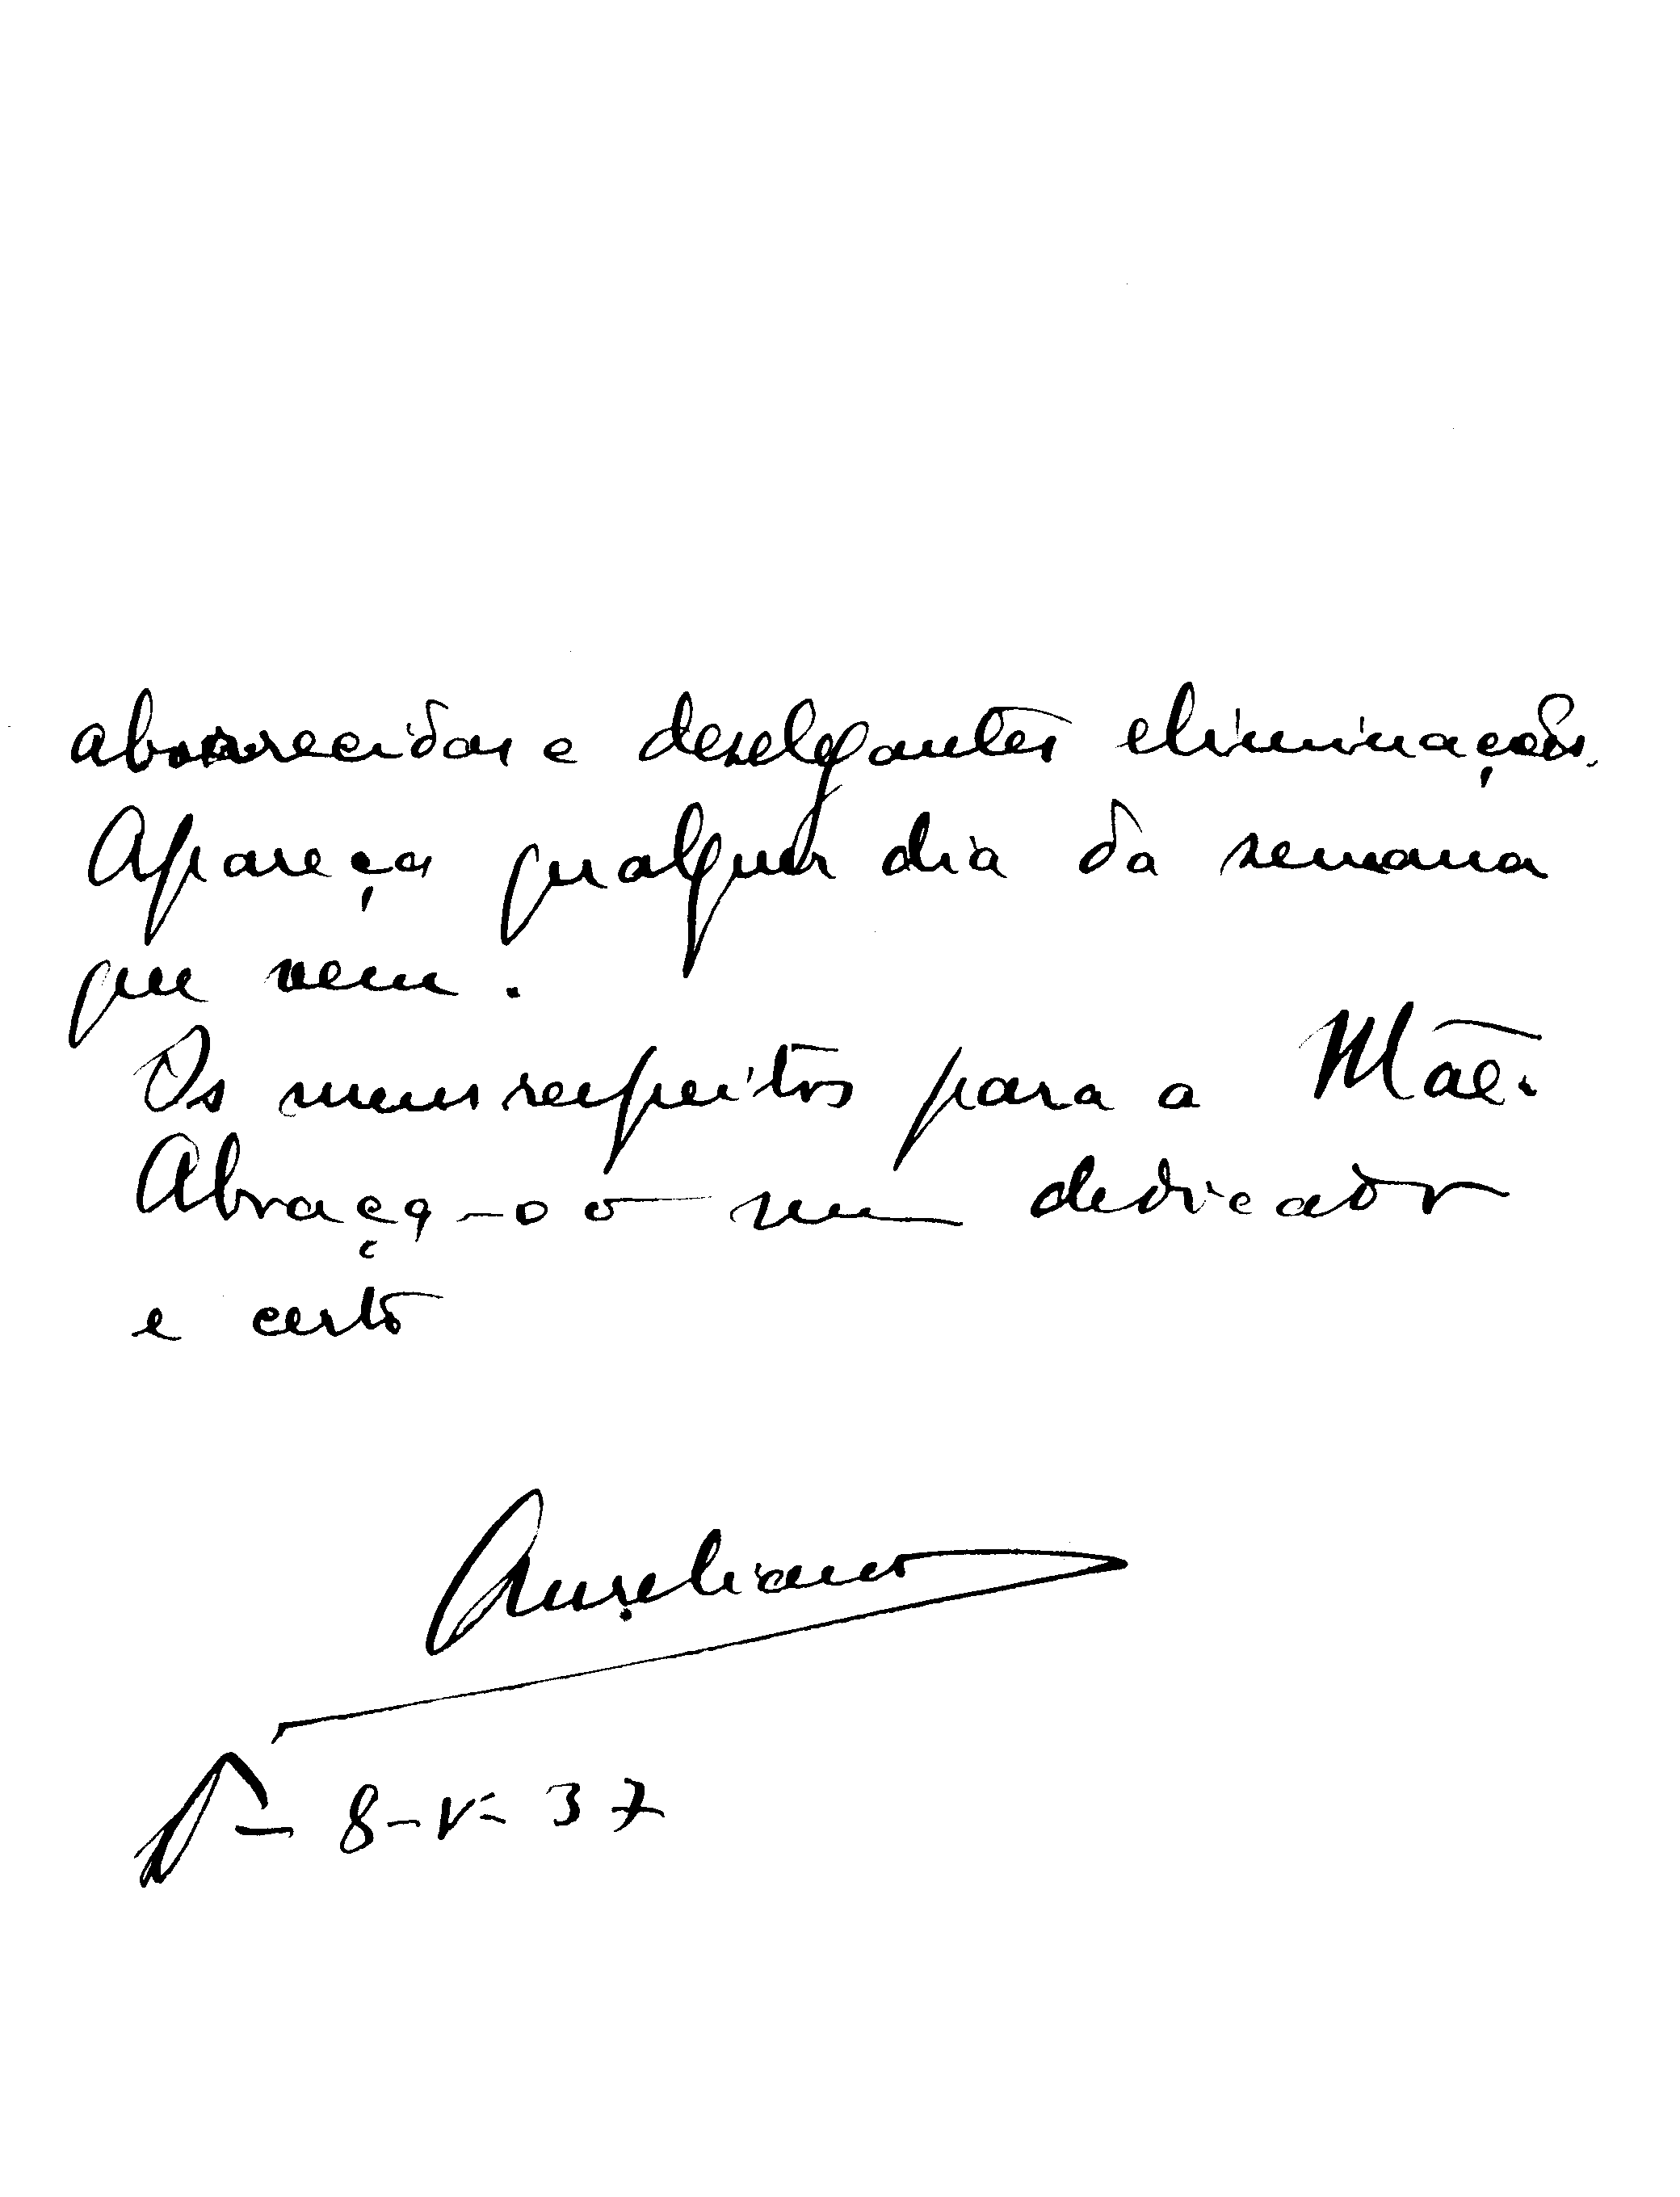 aborrecidas e deselegantes eliminações.
Apareça qualquer dia da semana
que vem.
Os meus respeitos para a Mãe.
Abraça-o o seu dedicado
e certo
Aureliano
8-V-37